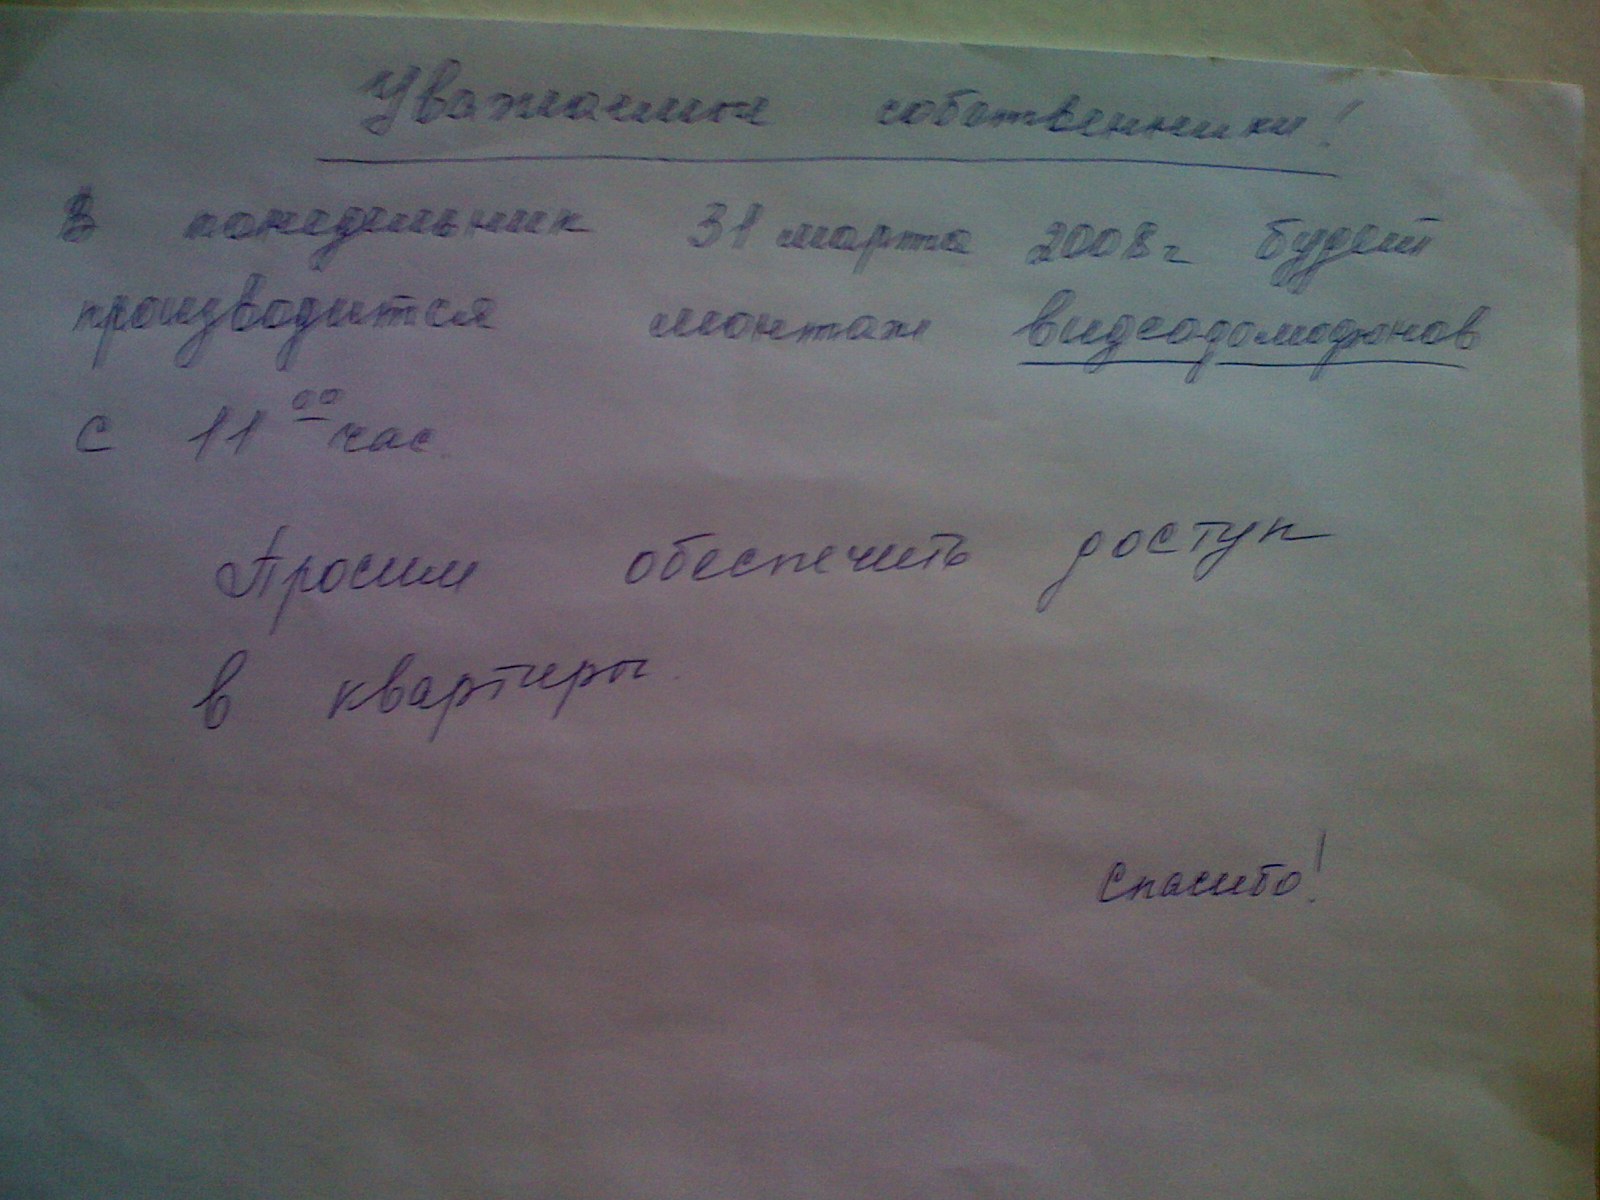 Уважаемые собственники!
В понедельник 31 марта 2008г будет
производится монтаж видеодомофонов
с 11 00 час.
Просим обеспечить доступ
в квартиры.
Спасибо!